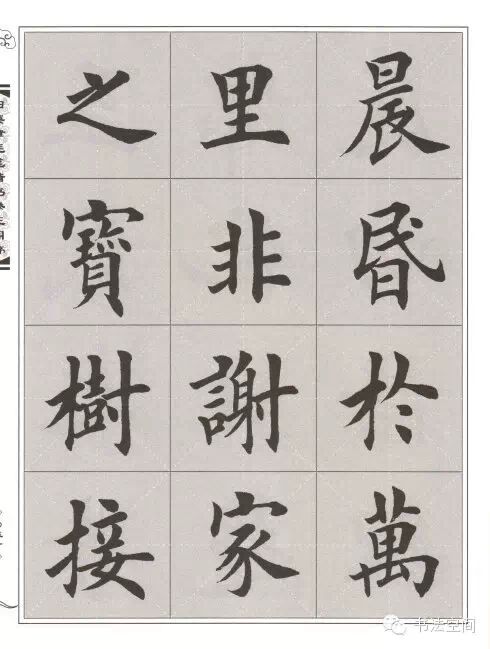 晨昏於萬
里非謝家
之寶樹接
书法空间